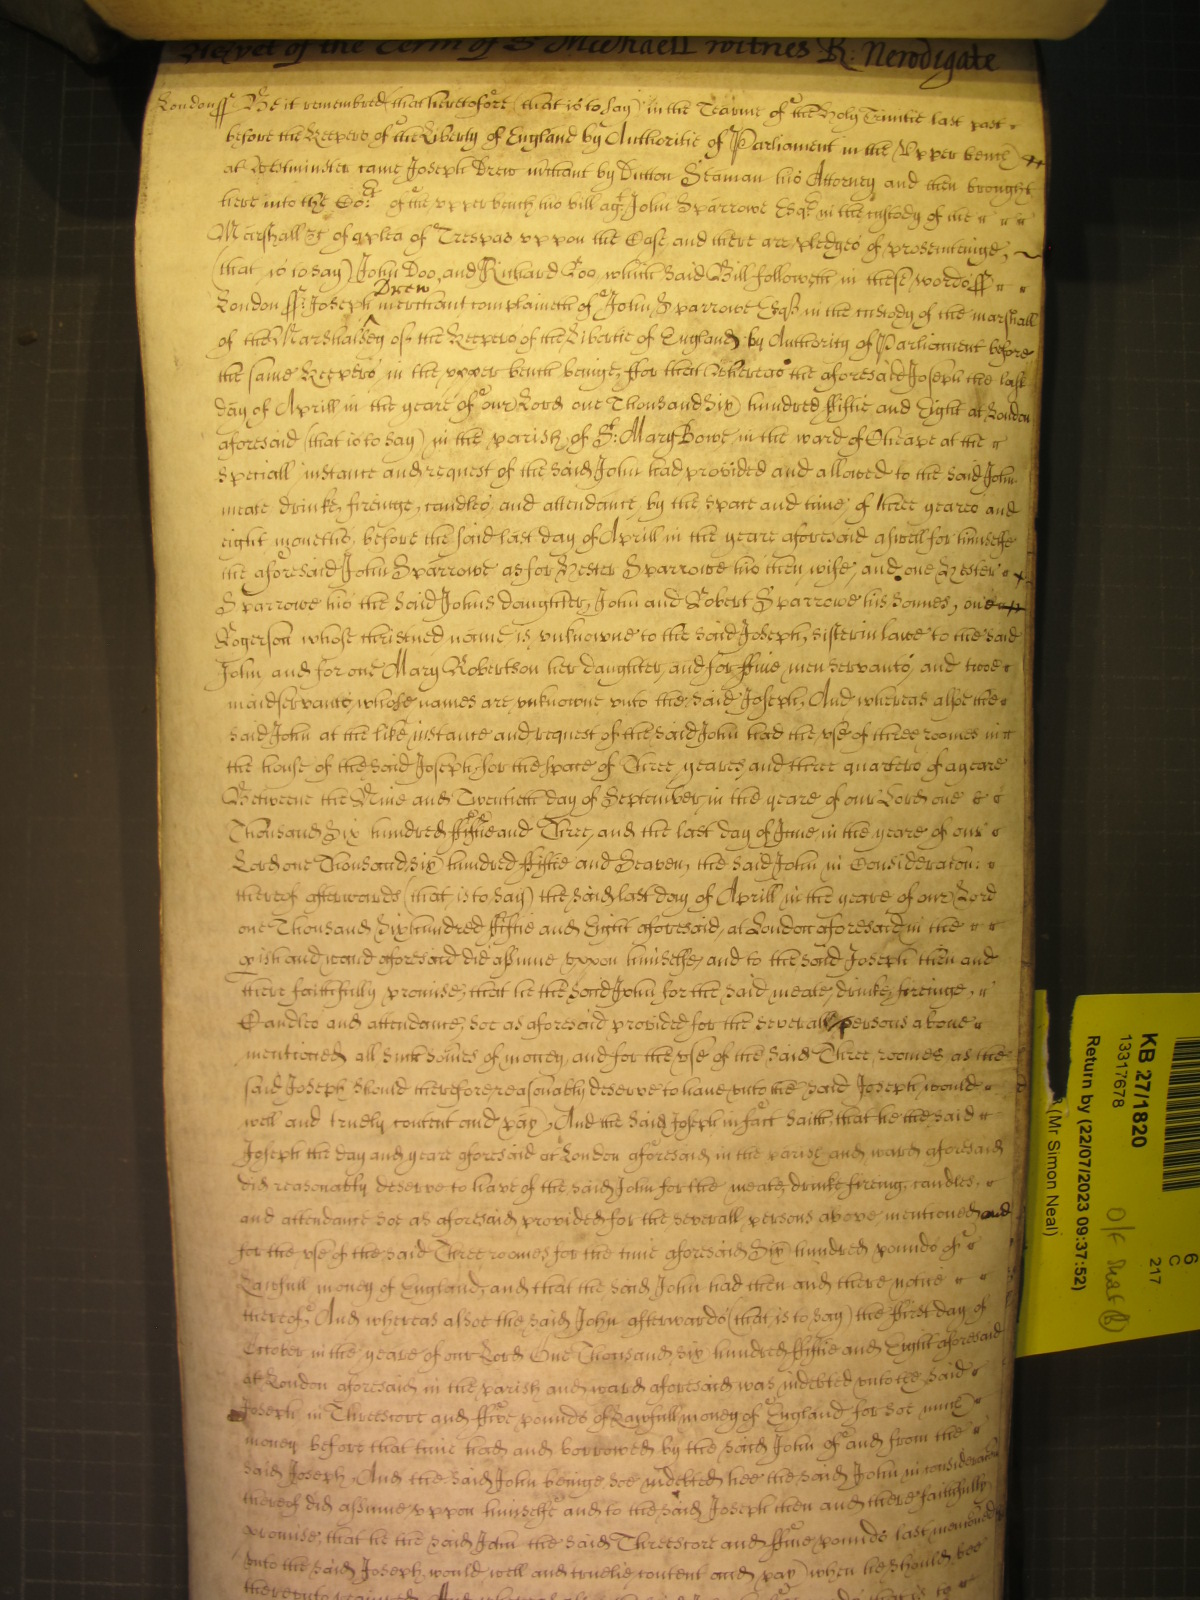 Helvet of the Term of St Michaell witnes R: Newdigate
London ss: Be it remembred that heretofore (that is to say) in the Tearme of the Holy Trinitie last past
before the Keepers of the Liberty of England by Authoritie of Parliament in the Upper bench
at Westminster came Joseph Drew m'chant by Dutton Seaman his Attorney and then brought
here into the Cort of the upper bench his bill agt John Sparrowe Esqr in the custody of the
Marshall &c of a plea of Trespas uppon the Case, and there are pledges of prosecutinge,
(that is to say) John Doo, and Richard Roo, which said Bill followeth in these words ss
London ss: Joseph Drew merchant complaineth of John Sparrowe Esqr in the custody of the marshall
of the Marshalsey of the Keepers of the Libertie of England by Authority of Parliament before
the same Keepers in the upper bench beinge, ffor that Whereas the aforesaid Joseph the last
day of Aprill in the yeare of our Lord one Thousand Six hundred ffiftie and Eight at London
aforesaid (that is to say) in the parish of St: Mary Bowe in the ward of Cheape at the
speciall instance and request of the said John had provided and allowed to the said John
meate drinke, fireinge, candles, and attendance by the space and time of three yeares and
eight moneths, before the said last day of Aprill in the yeare aforesaid aswell for himselfe
the aforesaid John Sparrowe as for Hester Sparrowe his then wife, and one Hester
Sparrowe his the said Johns daughter, John and Robert Sparrowe his sonnes, one
Rogerson whose christned name is unknowne to the said Joseph, sister in lawe to the said
John and for one Mary Robertson her daughter, and for ffive men servants, and twoe
maidservants, whose names are unknowne unto the said Joseph, And whereas alsoe the
said John at the like instance and request of the said John had the use of three roomes in
the house of the said Joseph, for the space of Three yeares, and three quarters of a yeare
Betweene the Nine and Twentieth day of September, in the yeare of our Lord one
Thousand Six hundred ffiftie and Three, and the last day of June in the yeare of our
Lord one Thousand, six hundred ffiftie and Seaven, the said John in Consideracon:
thereof afterwards (that is to say) the said last day of Aprill in the yeare of our Lord
one Thousand Six hundred ffiftie and Eight aforesaid, at London aforesaid in the
pish and ward aforesaid did assume uppon himselfe, and to the said Joseph then and
there faithfully promise, that he the said John for the said meate, drinke, fireinge,
Candles and attendance, soe as aforesaid provided for the severall persons above
mentioned all such somes of money, and for the use of the said Three roomes as the
said Joseph should therefore reasonably deserve to have unto the said Joseph would
well and truely content and pay, And the said Joseph in fact saith, that he the said
Joseph the day and yeare aforesaid at London aforesaid in the parish and ward aforesaid
did reasonably deserve to have of the said John for the meate, drinke fireing, candles,
and attendance soe as aforesaid provided for the severall persons above mentioned and
for the use of the said Three roomes for the time aforesaid Six hundred pounds of
Lawfull money of England, and that the said John had then and there notice
thereof, And whereas alsoe the said John afterwards (that is to say) the first day of
October in the yeare of our Lord One Thousand six hundred ffiftie and Eight aforesaid
at London aforesaid in the parish and ward aforesaid was indebted unto the said
Joseph in Threescore and ffive pounds of Lawfull money of England for soe much
money before that time had and borrowed by the said John of and from the
said Joseph, And the said John beinge soe indebted hee the said John in consideracon
thereof did assume uppon himselfe and to the said Joseph then and there faithfully
promise, that he the said John the said Threescore and ffive pounds last mentioned
unto the said Joseph, would well and truelie content and pay when he should bee
thereunto required And whereas
KB 27/1820
13317678
Return by (22/07/2023 09:37:52)
(Mr Simon Neal)
6
C
217